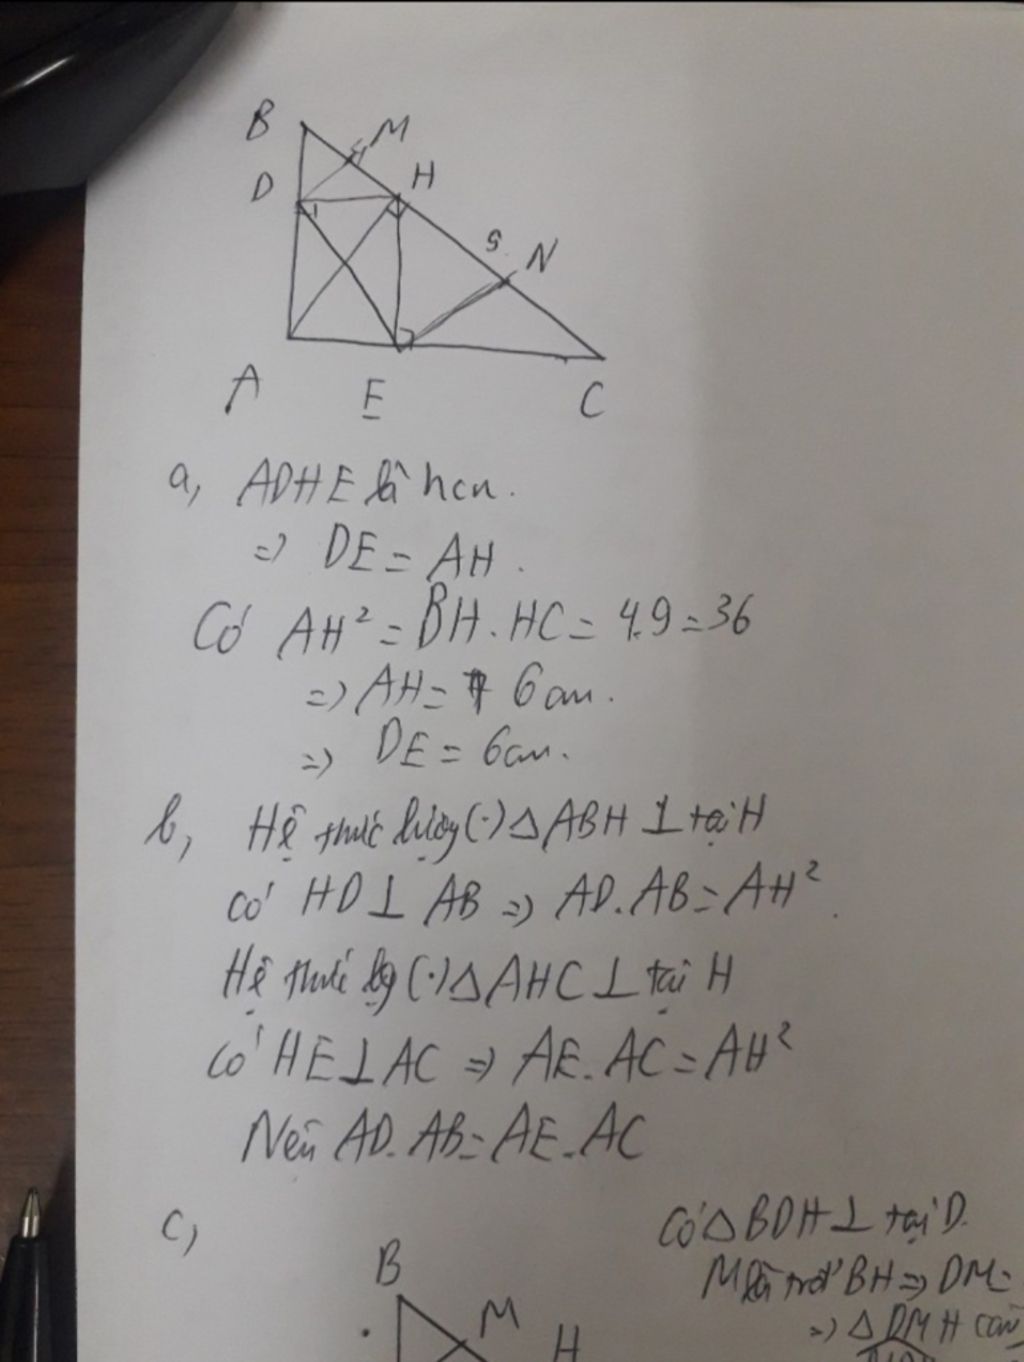 B
M
D
H
S
N
A
E
C
a, ADHE là hcn.
=> DE = AH.
Có AH² = BH.HC = 4.9 = 36
=> AH = 6 cm.
=> DE = 6cm.
b, Hệ thức lượng (.) Δ ABH ⊥ tại H
có HD ⊥ AB => AD.AB = AH².
Hệ thức lg (.) Δ AHC ⊥ tại H
có HE ⊥ AC => AE.AC = AH²
Nên AD.AB = AE.AC
c,
Có Δ BDH ⊥ tại D.
M là trđ BH => DM =
=> Δ DMH cân
B
M
H